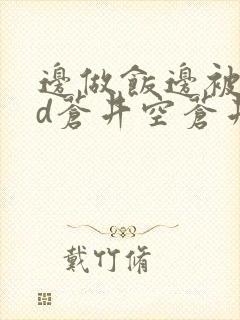 邊做飯邊被
d蒼井空蒼井
戴竹脩